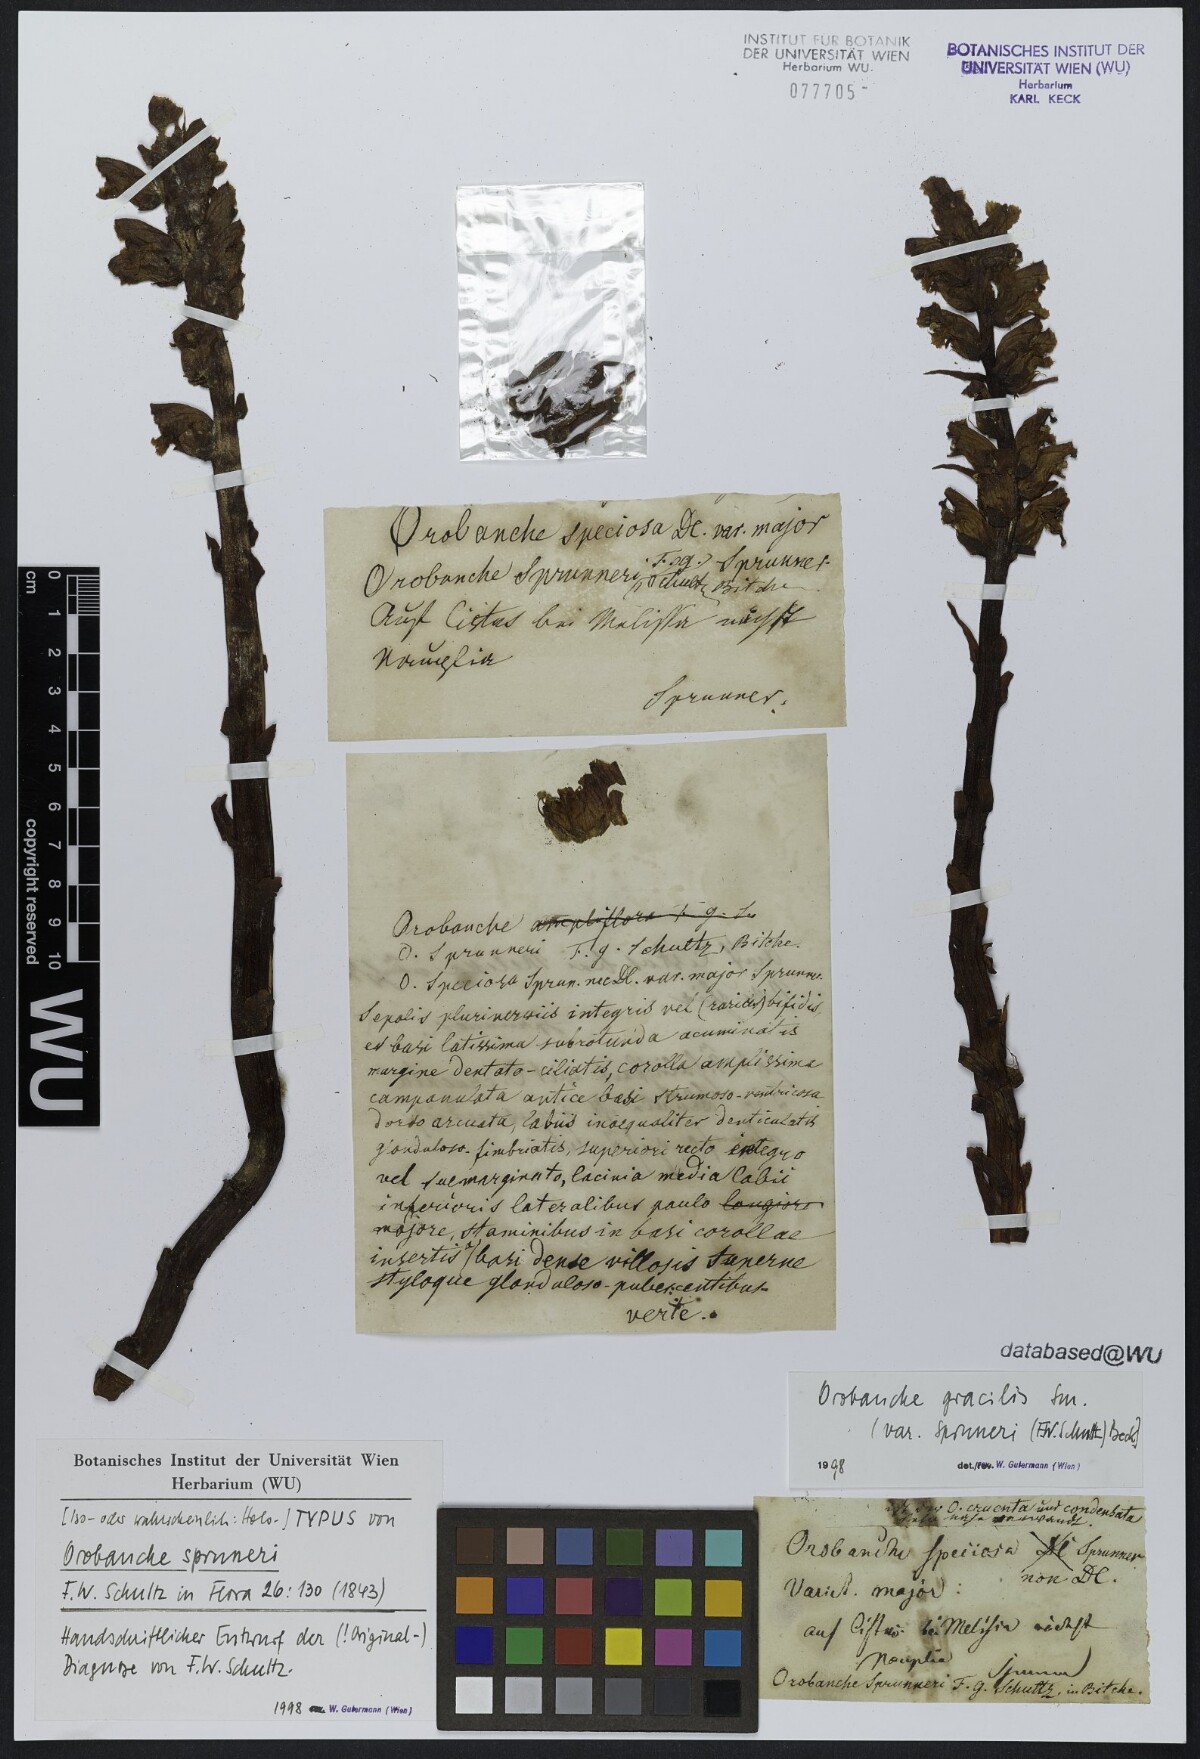 INSTITUT FÜR BOTANIK
DER UNIVERSITÄT WIEN
Herbarium WU.
077705
BOTANISCHES INSTITUT DER
UNIVERSITÄT WIEN (WU)
Herbarium
KARL KECK
Orobanche speciosa DC. var. major
Orobanche Sprunneri F. g. Schultz, Bitche. Sprunner.
Auf Cistus bei Melissa nächst
Nauplia
Sprunner.
Orobanche ampliflora F. g. S
O. Sprunneri F. g. Schultz, Bitche.
O. speciosa Sprun. nec DC. var. major Sprunner.
Sepalis plurinerviis integris vel (rarius) bifidis,
ex basi latissima subrotunda acuminatis
margine dentato-ciliatis, corolla amplissima
campanulata antice basi strumoso-ventricosa
dorso arcuata, labiis inaequaliter denticulatis
glanduloso-fimbriatis, superiori recto integro
vel suemarginato, lacinia media labii
inferioris lateralibus paulo longiore
majore, staminibus in basi corollae
insertis basi dense villosis superne
styloque glanduloso-pubescentibus.
verte.
cm 0 1 2 3 4 5 6 7 8 9 10
copyright reserved
WU
databased@WU
Orobanche gracilis Sm.
(var. spruneri (F.W. Schultz) Beck)
1998 det./rev. W. Gutermann (Wien)
Botanisches Institut der Universität Wien
Herbarium (WU)
[Iso- oder wahrscheinlich: Holo-] TYPUS von
Orobanche spruneri
F.W. Schultz in Flora 26: 130 (1843)
Handschriftlicher Entwurf der (! Original-)
Diagnose von F.W. Schultz.
1998 W. Gutermann (Wien)
O. cruenta und condensata
Orobanche speciosa DC Sprunner
non DC.
Variet. major:
auf Cistus bei Melissa nächst
Nauplia
Orobanche Sprunneri F. g. Schultz, in Bitche.